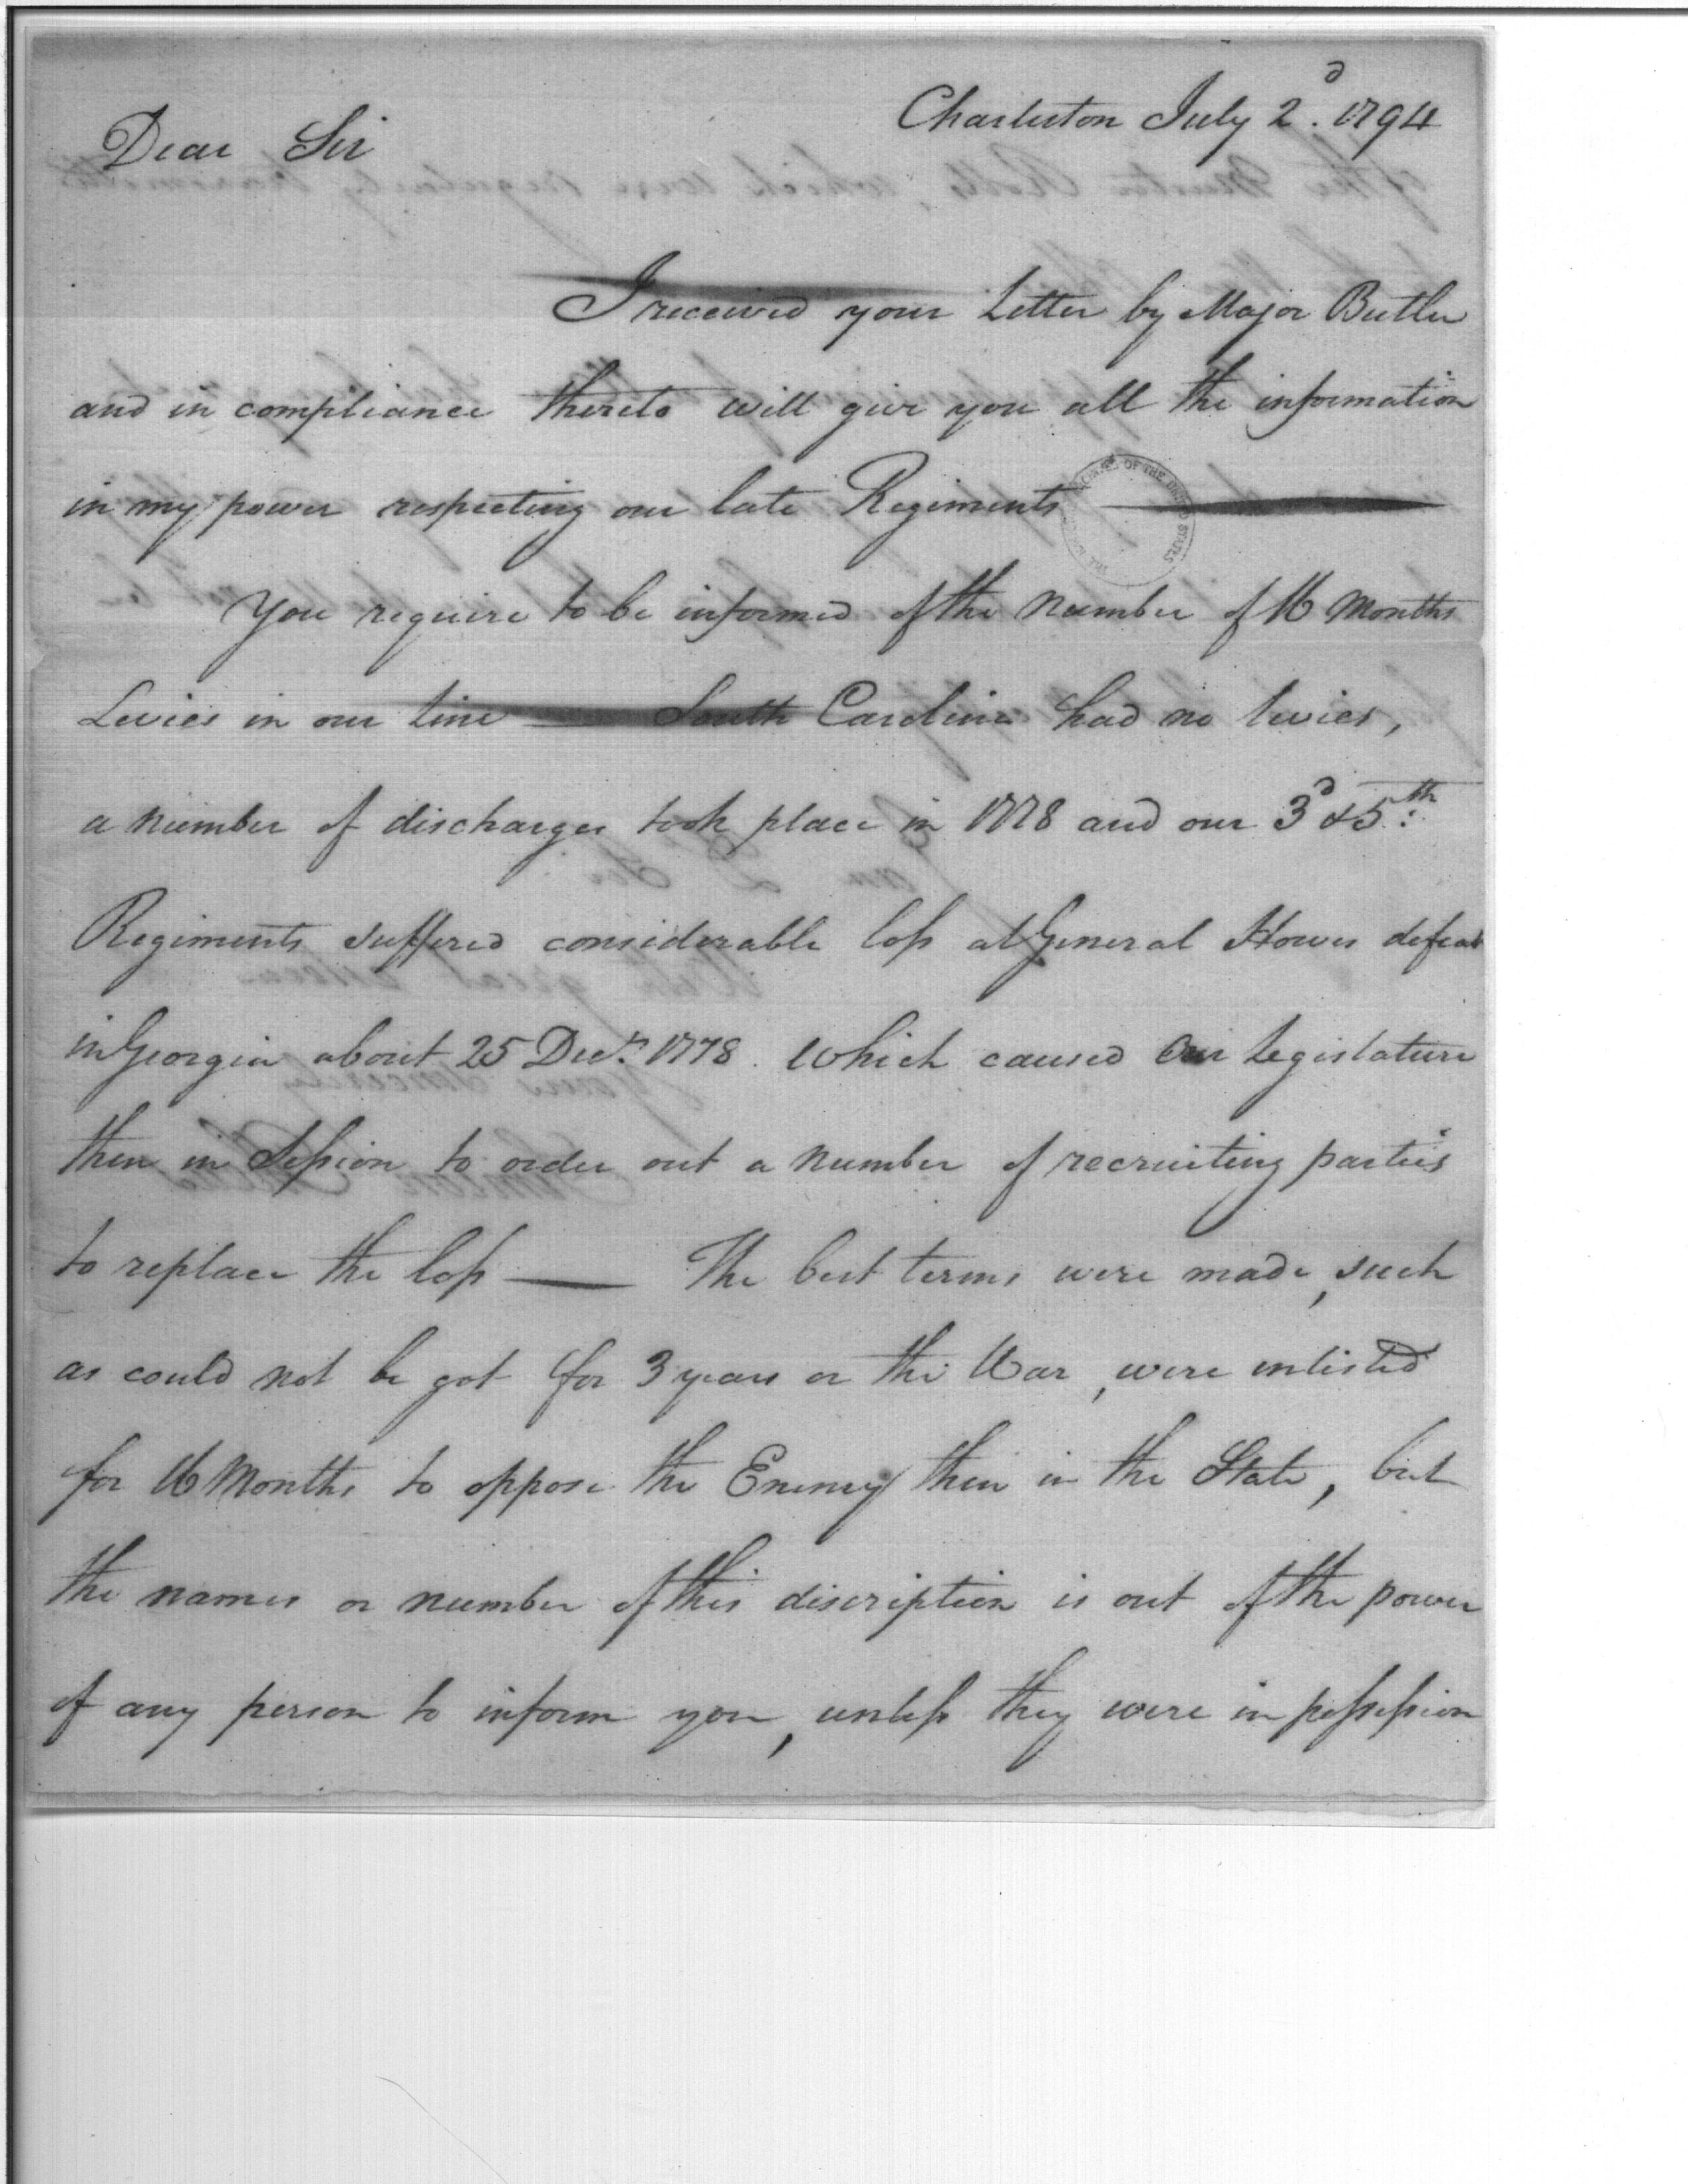 Charleston July 2d. 1794
Dear Sir
I received your Letter by Major Butler
and in compliance thereto will give you all the information
in my power respecting our late Regiments —
THE ARCHIVES OF THE UNITED STATES
You require to be informed of the number of 16 Months
Levies in our line — South Carolina had no levies,
a number of discharges took place in 1778 and our 3d & 5th:
Regiments suffered considerable loss at General Howes defeat
in Georgia about 25 Decr. 1778. which caused our Legislature
then in Session to order out a number of recruiting parties
to replace the loss — The best terms were made, such
as could not be got for 3 years or the War, were enlisted
for 16 Months to oppose the Enemy then in the State, but
the names or number of this discription is out of the power
of any person to inform you, unless they were in possession